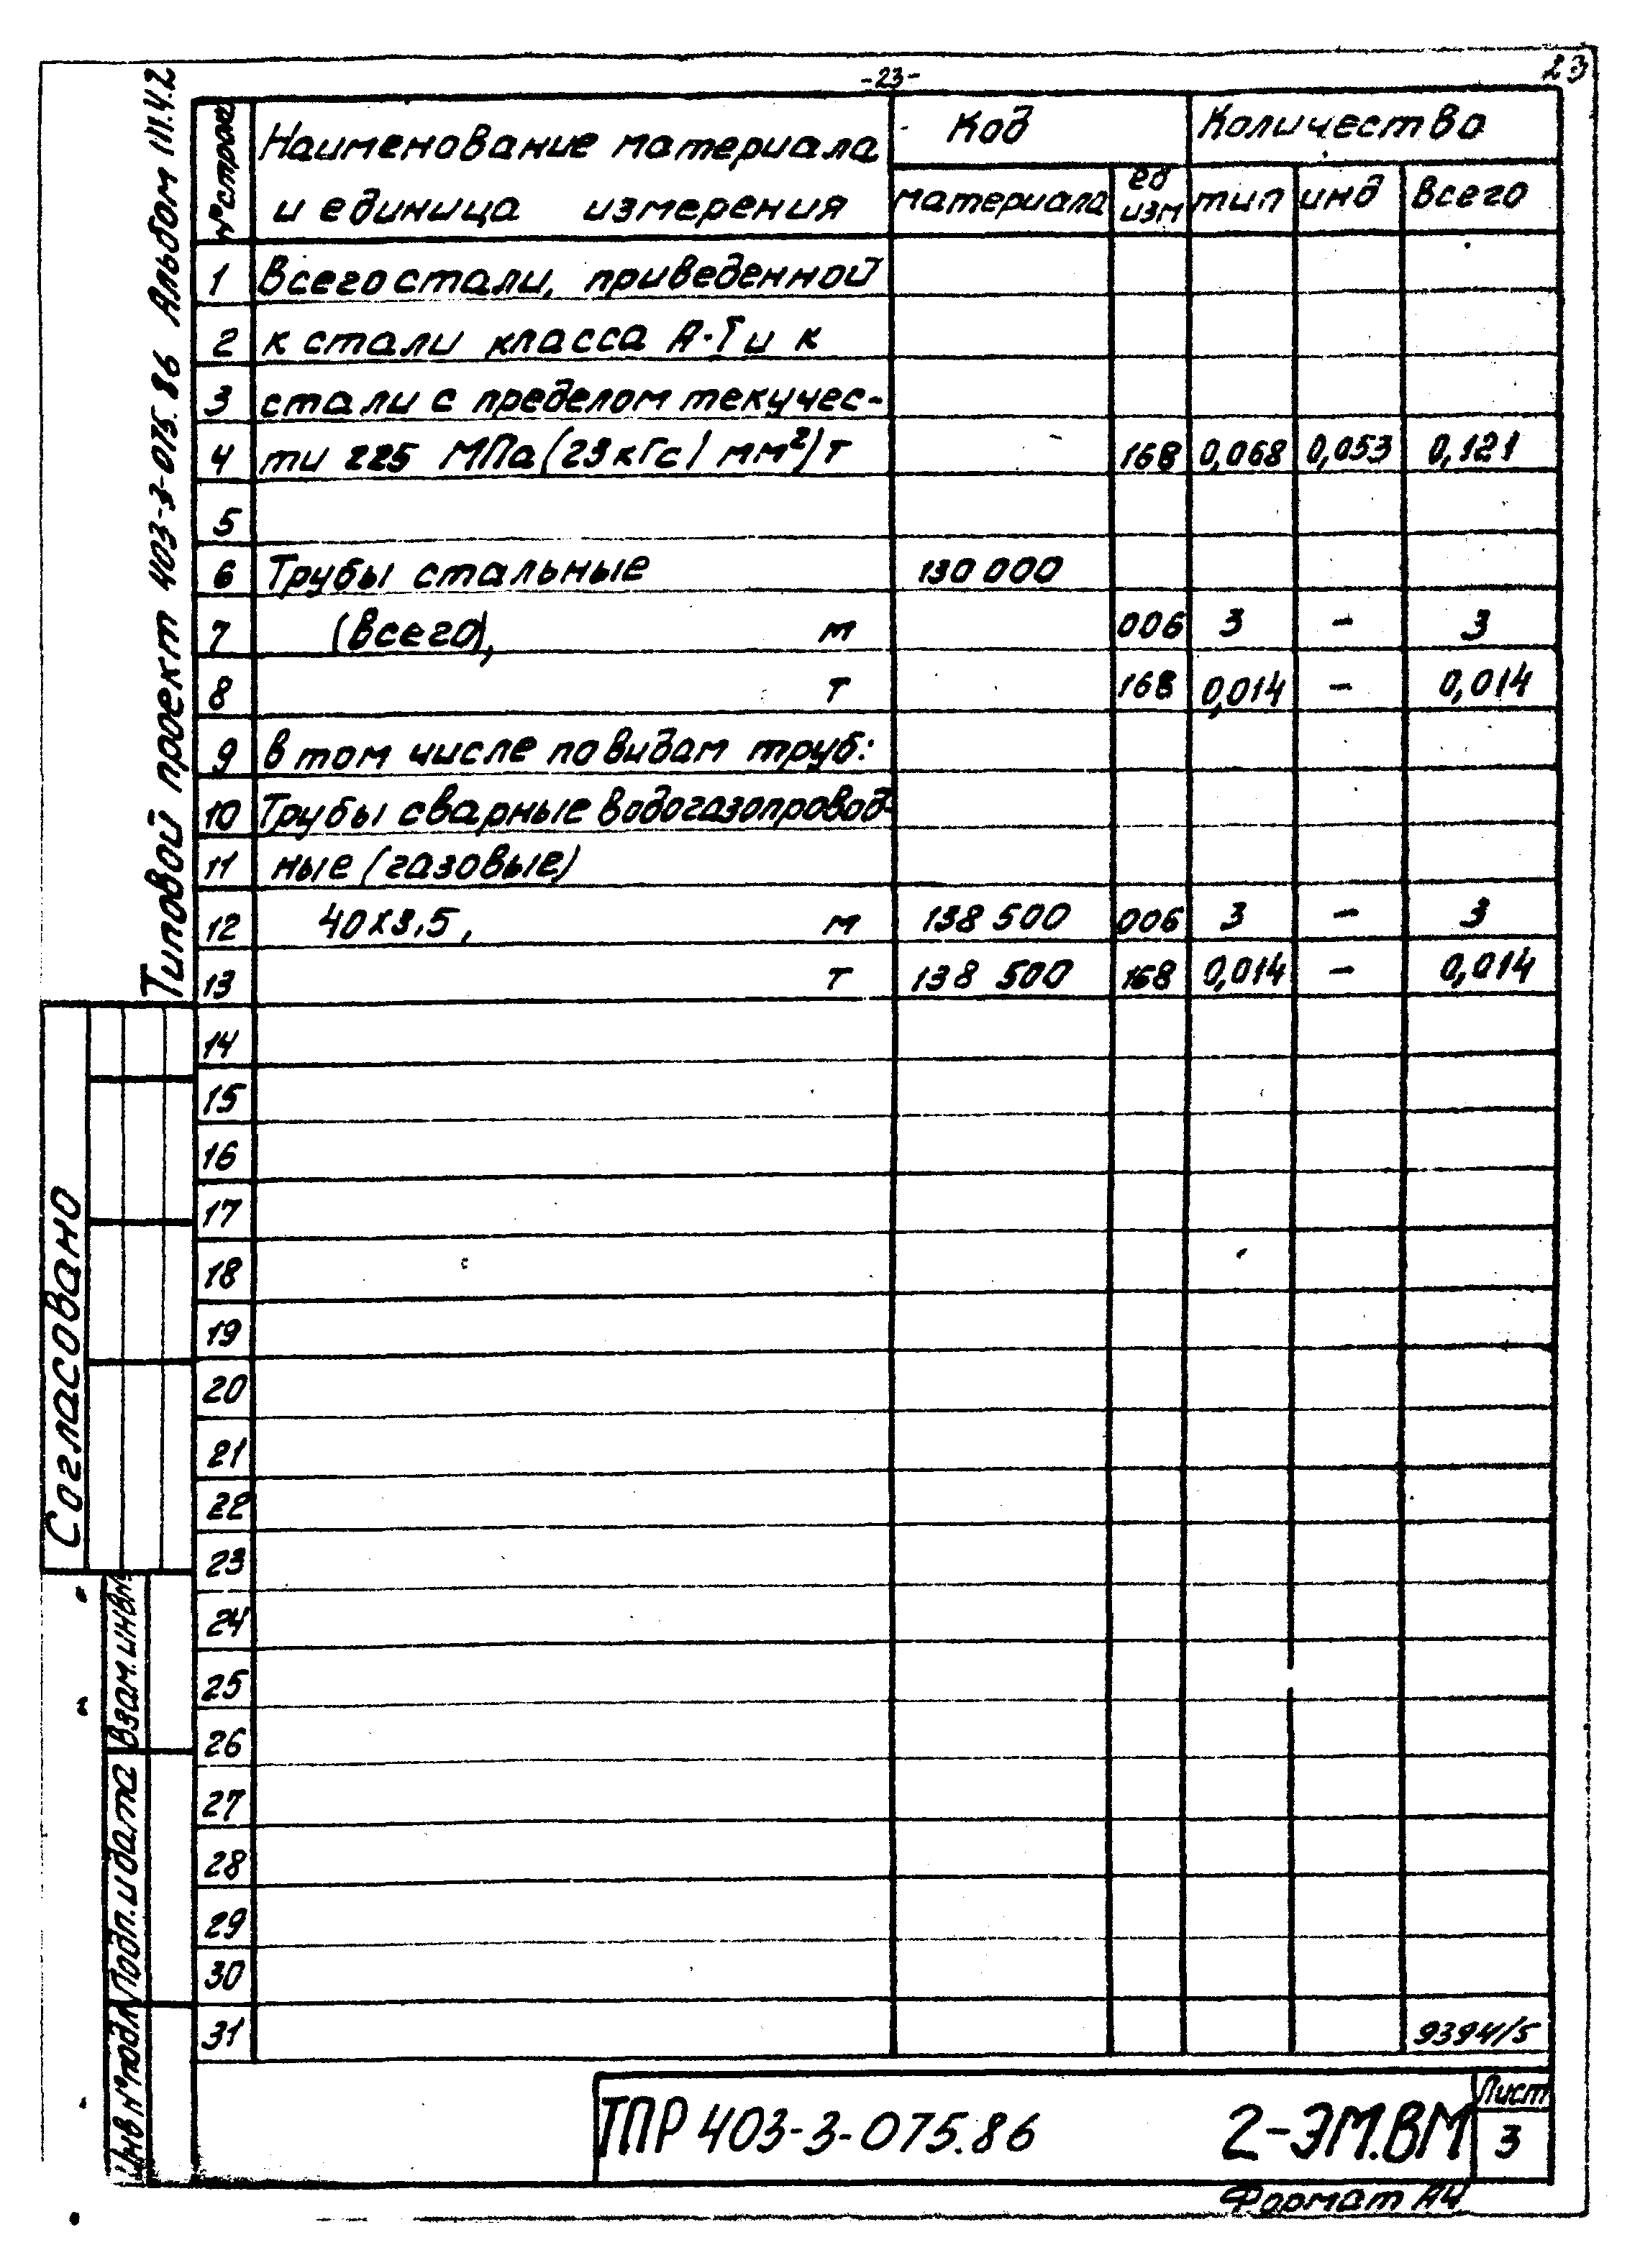 -23-
23
Типовой проект 403-3-075.86 Альбом III.4.2
№ строк
Наименование материала
и единица измерения
Код
материала
ед
изм
Количество
тип
инд
всего
1 Всего стали, приведенной
2 к стали класса А-I и к
3 стали с пределом текучес-
4 ти 225 МПа (23 кГс/мм²) т 168 0,068 0,053 0,121
5
6 Трубы стальные 130 000
7 (всего), м 006 3 - 3
8 т 168 0,014 - 0,014
9 в том числе по видам труб:
10 Трубы сварные водогазопровод-
11 ные (газовые)
12 40х3,5, м 138 500 006 3 - 3
13 т 138 500 168 0,014 - 0,014
14
15
16
17
18
19
20
21
22
23
24
25
26
27
28
29
30
31 9394/5
Согласовано
Взам. инв №
Подп. и дата
Инв № подл
ТПР 403-3-075.86 2-ЭМ.ВМ
Лист
3
Формат А4